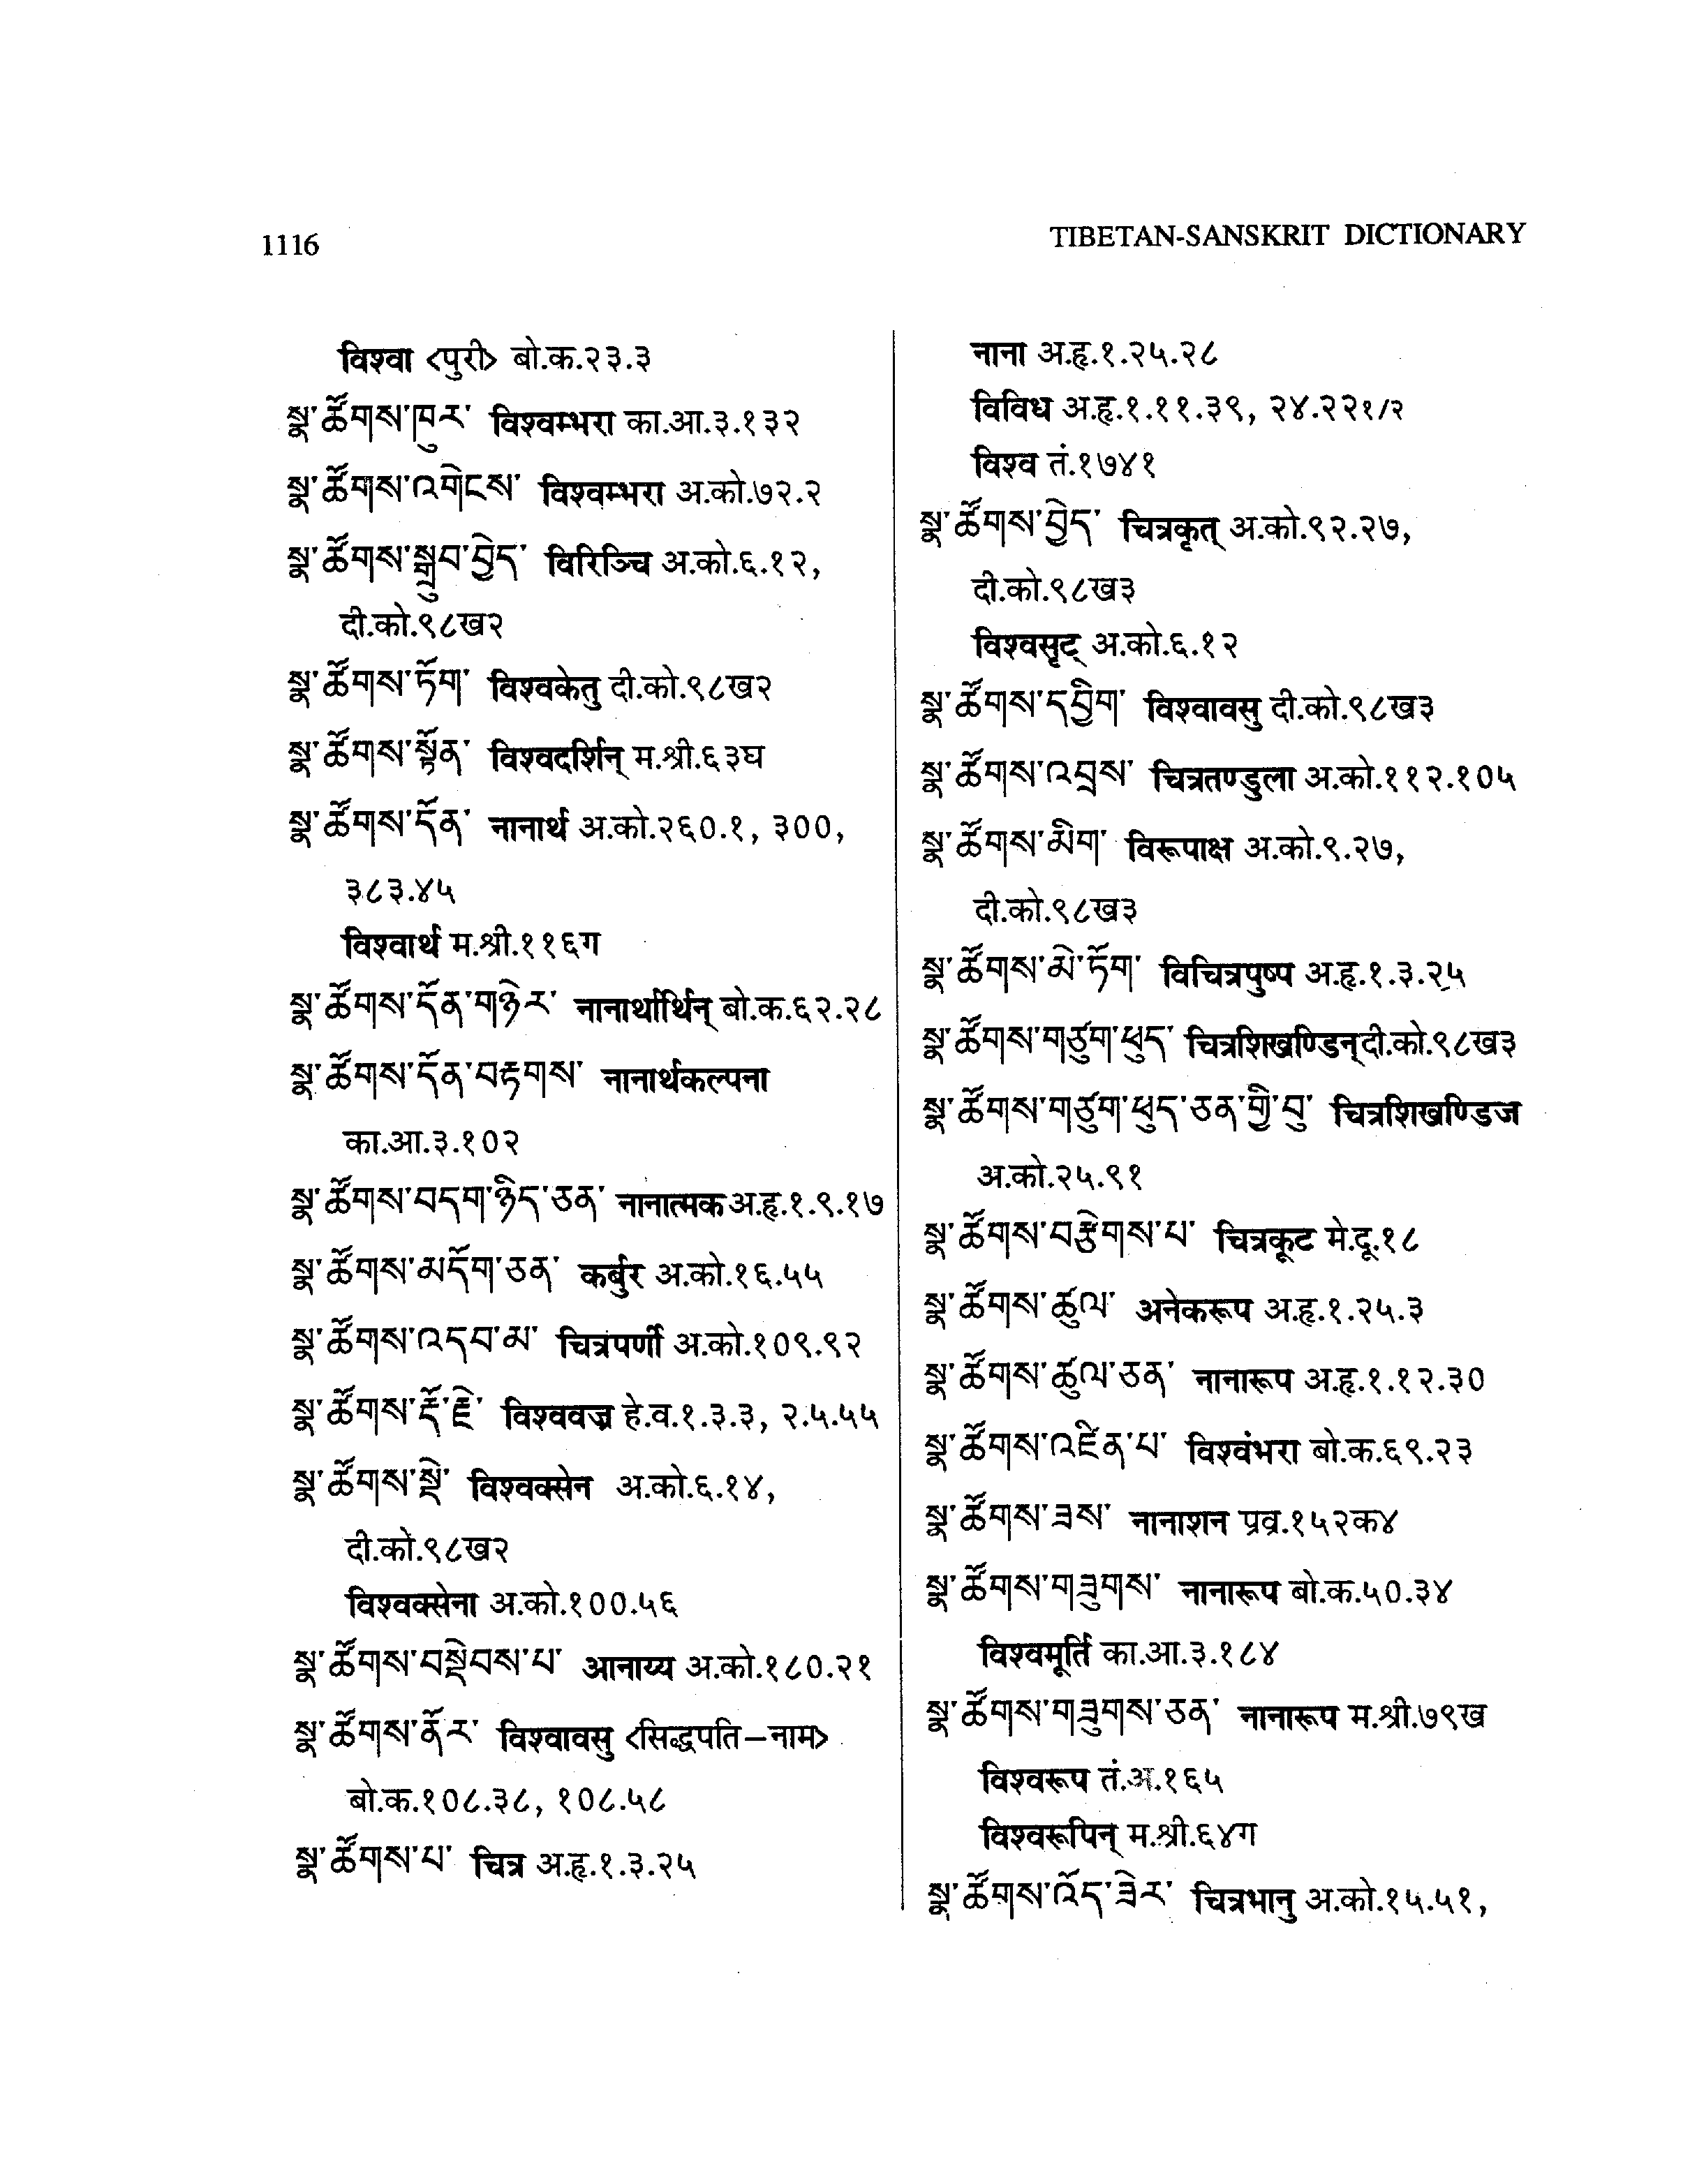 1116
TIBETAN-SANSKRIT DICTIONARY
विश्वा <पुरी> बो.क.२३.३
སྣ་ཚོགས་ཁུར་ विश्वम्भरा का.आ.३.१३२
སྣ་ཚོགས་འགེངས་ विश्वम्भरा अ.को.७२.२
སྣ་ཚོགས་སྒྲུབ་བྱེད་ विरिञ्चि अ.को.६.१२,
दी.को.९८ख२
སྣ་ཚོགས་ཏོག་ विश्वकेतु दी.को.९८ख२
སྣ་ཚོགས་སྟོན་ विश्वदर्शिन् म.श्री.६३घ
སྣ་ཚོགས་དོན་ नानार्थ अ.को.२६०.१, ३००,
३८३.४५
विश्वार्थ म.श्री.११६ग
སྣ་ཚོགས་དོན་གཉེར་ नानार्थार्थिन् बो.क.६२.२८
སྣ་ཚོགས་དོན་བརྟགས་ नानार्थकल्पना
का.आ.३.१०२
སྣ་ཚོགས་བདག་ཉིད་ཅན་ नानात्मक अ.हृ.१.९.१७
སྣ་ཚོགས་མདོག་ཅན་ कर्बुर अ.को.१६.५५
སྣ་ཚོགས་འདབ་མ་ चित्रपर्णी अ.को.१०९.९२
སྣ་ཚོགས་རྡོ་རྗེ་ विश्ववज्र हे.व.१.३.३, २.५.५५
སྣ་ཚོགས་སྡེ་ विश्वक्सेन अ.को.६.१४,
दी.को.९८ख२
विश्वक्सेना अ.को.१००.५६
སྣ་ཚོགས་བསྡེབས་པ་ आनाय्य अ.को.१८०.२१
སྣ་ཚོགས་ནོར་ विश्वावसु <सिद्धपति–नाम>
बो.क.१०८.३८, १०८.५८
སྣ་ཚོགས་པ་ चित्र अ.हृ.१.३.२५
नाना अ.हृ.१.२५.२८
विविध अ.हृ.१.११.३९, २४.२२१/२
विश्व तं.१७४१
སྣ་ཚོགས་བྱེད་ चित्रकृत् अ.को.९२.२७,
दी.को.९८ख३
विश्वसृट् अ.को.६.१२
སྣ་ཚོགས་དབྱིག་ विश्वावसु दी.को.९८ख३
སྣ་ཚོགས་འབྲས་ चित्रतण्डुला अ.को.११२.१०५
སྣ་ཚོགས་མིག་ विरूपाक्ष अ.को.९.२७,
दी.को.९८ख३
སྣ་ཚོགས་མེ་ཏོག་ विचित्रपुष्प अ.हृ.१.३.२५
སྣ་ཚོགས་གཙུག་ཕུད་ चित्रशिखण्डिन् दी.को.९८ख३
སྣ་ཚོགས་གཙུག་ཕུད་ཅན་གྱི་བུ་ चित्रशिखण्डिज
अ.को.२५.९१
སྣ་ཚོགས་བརྩེགས་པ་ चित्रकूट मे.दू.१८
སྣ་ཚོགས་ཚུལ་ अनेकरूप अ.हृ.१.२५.३
སྣ་ཚོགས་ཚུལ་ཅན་ नानारूप अ.हृ.१.१२.३०
སྣ་ཚོགས་འཛིན་པ་ विश्वंभरा बो.क.६९.२३
སྣ་ཚོགས་ཟས་ नानाशन प्रव्र.१५२क४
སྣ་ཚོགས་གཟུགས་ नानारूप बो.क.५०.३४
विश्वमूर्ति का.आ.३.१८४
སྣ་ཚོགས་གཟུགས་ཅན་ नानारूप म.श्री.७९ख
विश्वरूप तं.अ.१६५
विश्वरूपिन् म.श्री.६४ग
སྣ་ཚོགས་འོད་ཟེར་ चित्रभानु अ.को.१५.५१,